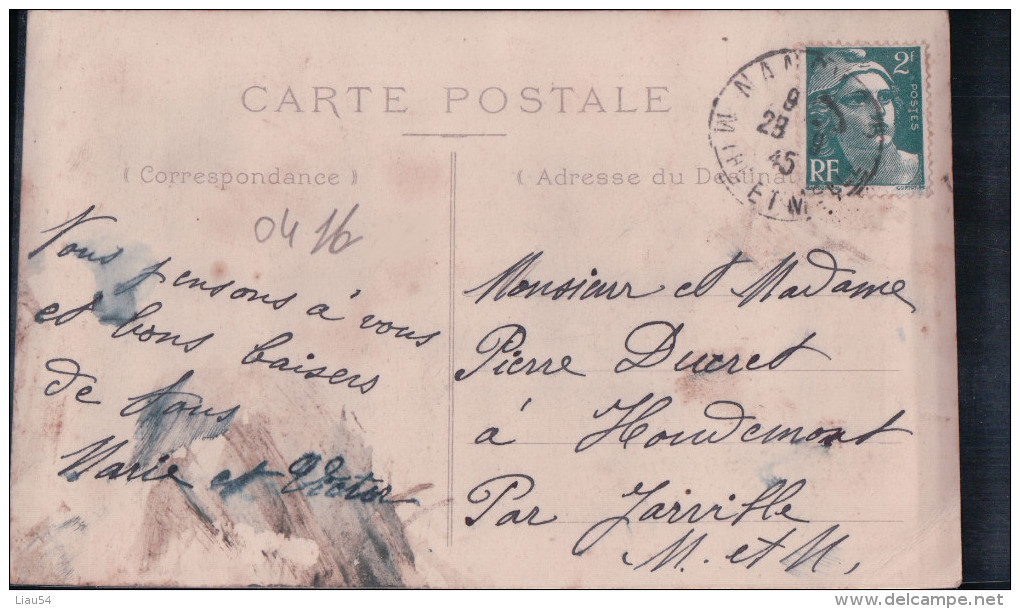 CARTE POSTALE
( Correspondance )
( Adresse du Destinat
NANCY
9
28
45
MTHE ET M
2f
POSTES
RF
04 16
Nous pensons à vous
et bons baisers
de tous
Marie et Victor
Monsieur et Madame
Pierre Ducret
à Houdemont
Par Jarville
M. et M.
Liau54
www.delcampe.net